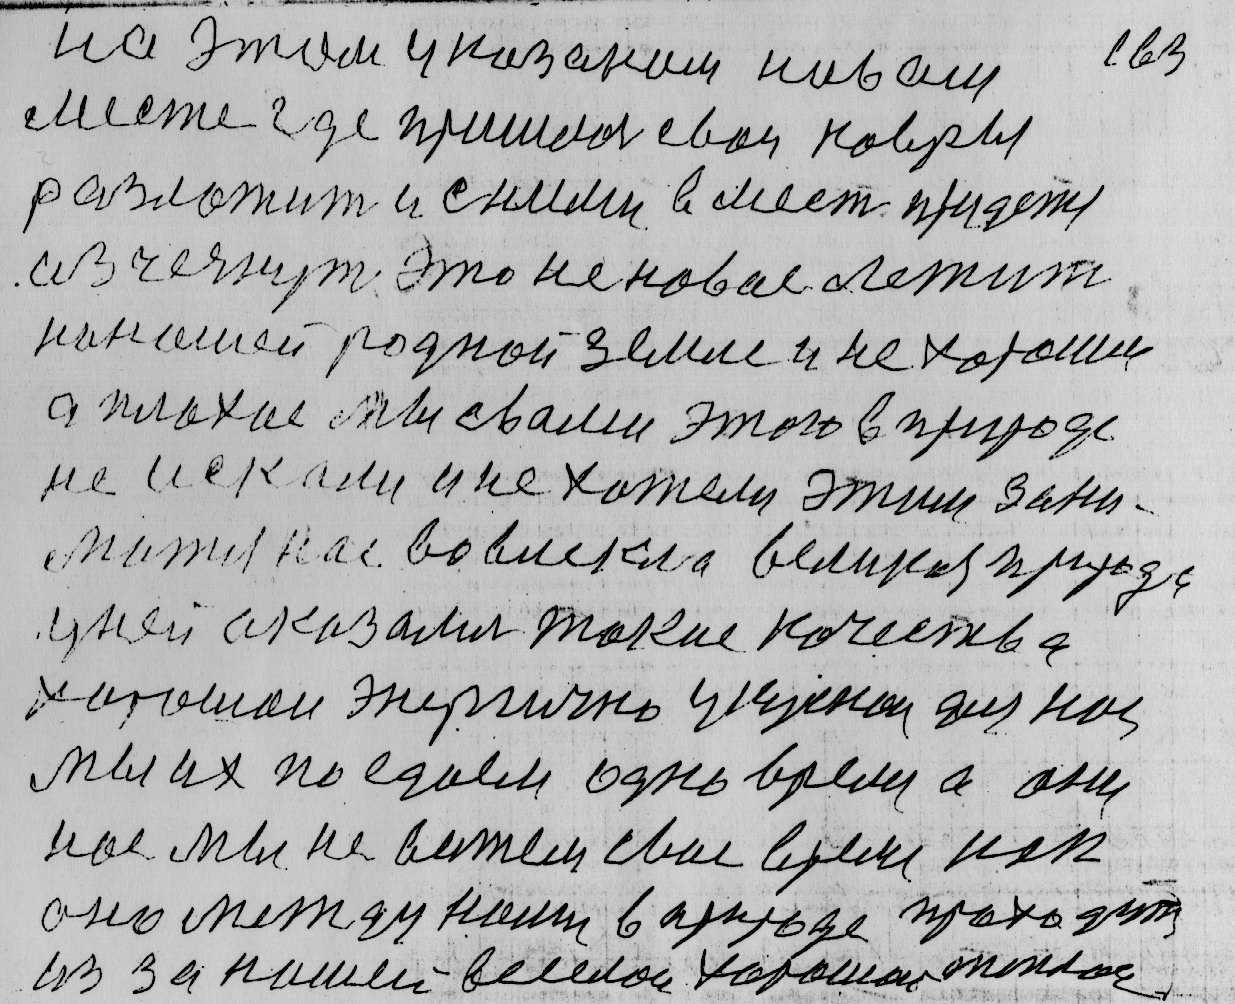 на этом указаном новам свз
месте где пришлос свои ковры
разложит и сними вмест придеты
изчезнут. Это не новае лежит
нанашей родной земле и не хороши
а плохае мы свами этого в природе
не искали и не хотели этим зани-
маты нас вовлекла великая природа
уней аказалис такие качества
харошаи энергично укусная для нас
мы их поедаем одно время а они
нас мы не видем свае время как
оно между нами в природе проходит
из за нашей веселаи харошаи